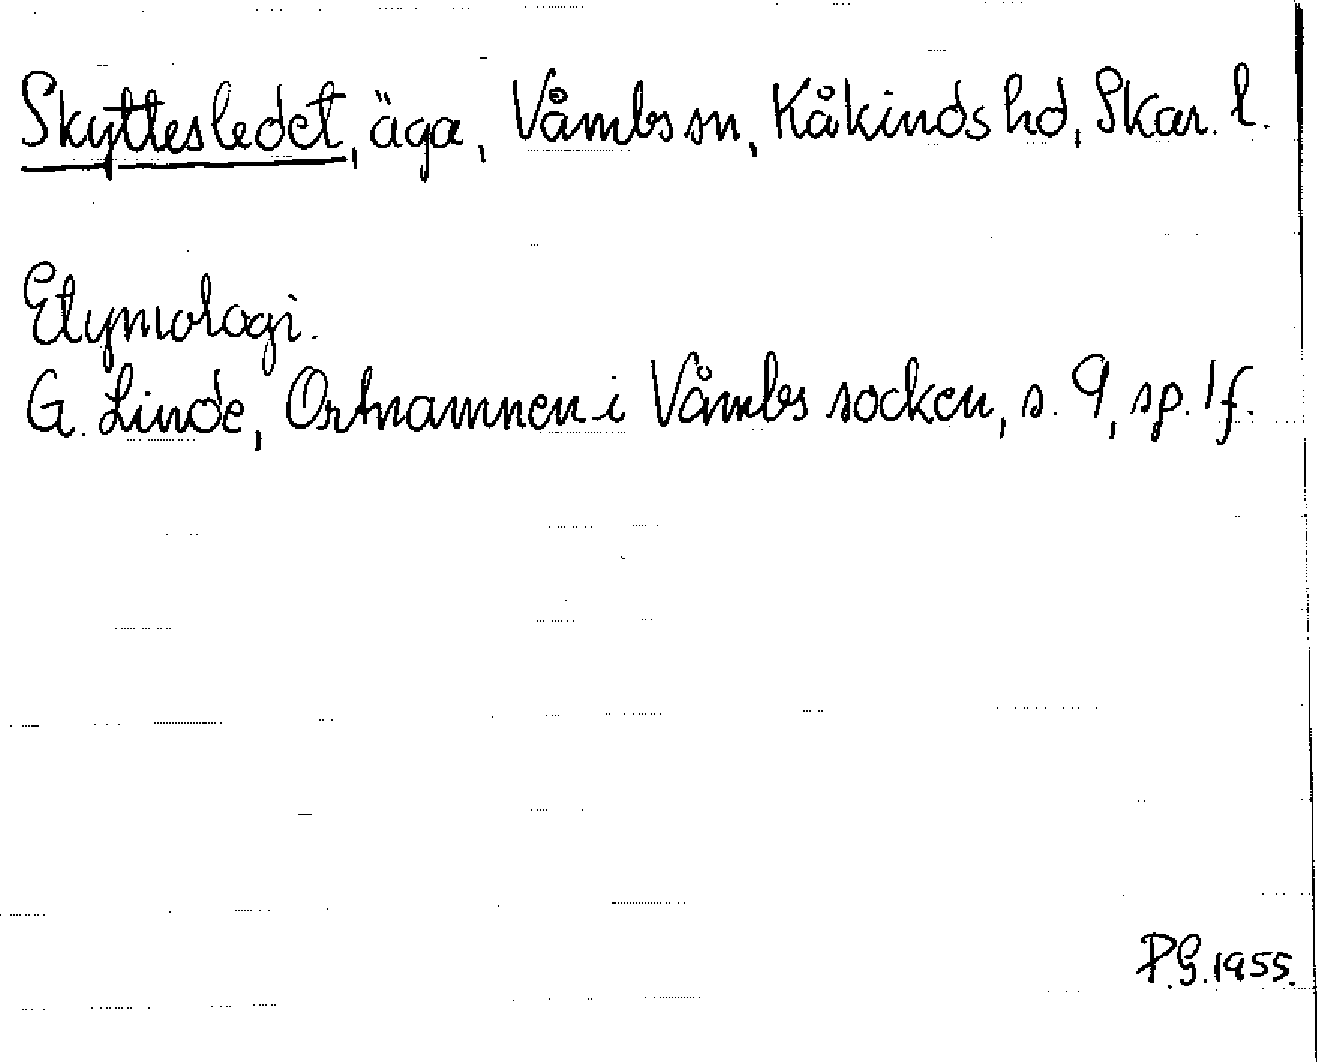 Skyttesledet, äga, Våmbs sn, Kåkinds hd, Skar. l.
Etymologi.
G. Linde, Ortnamnen i Våmbs socken, s. 9, sp. 1 f.
P.G. 1955.